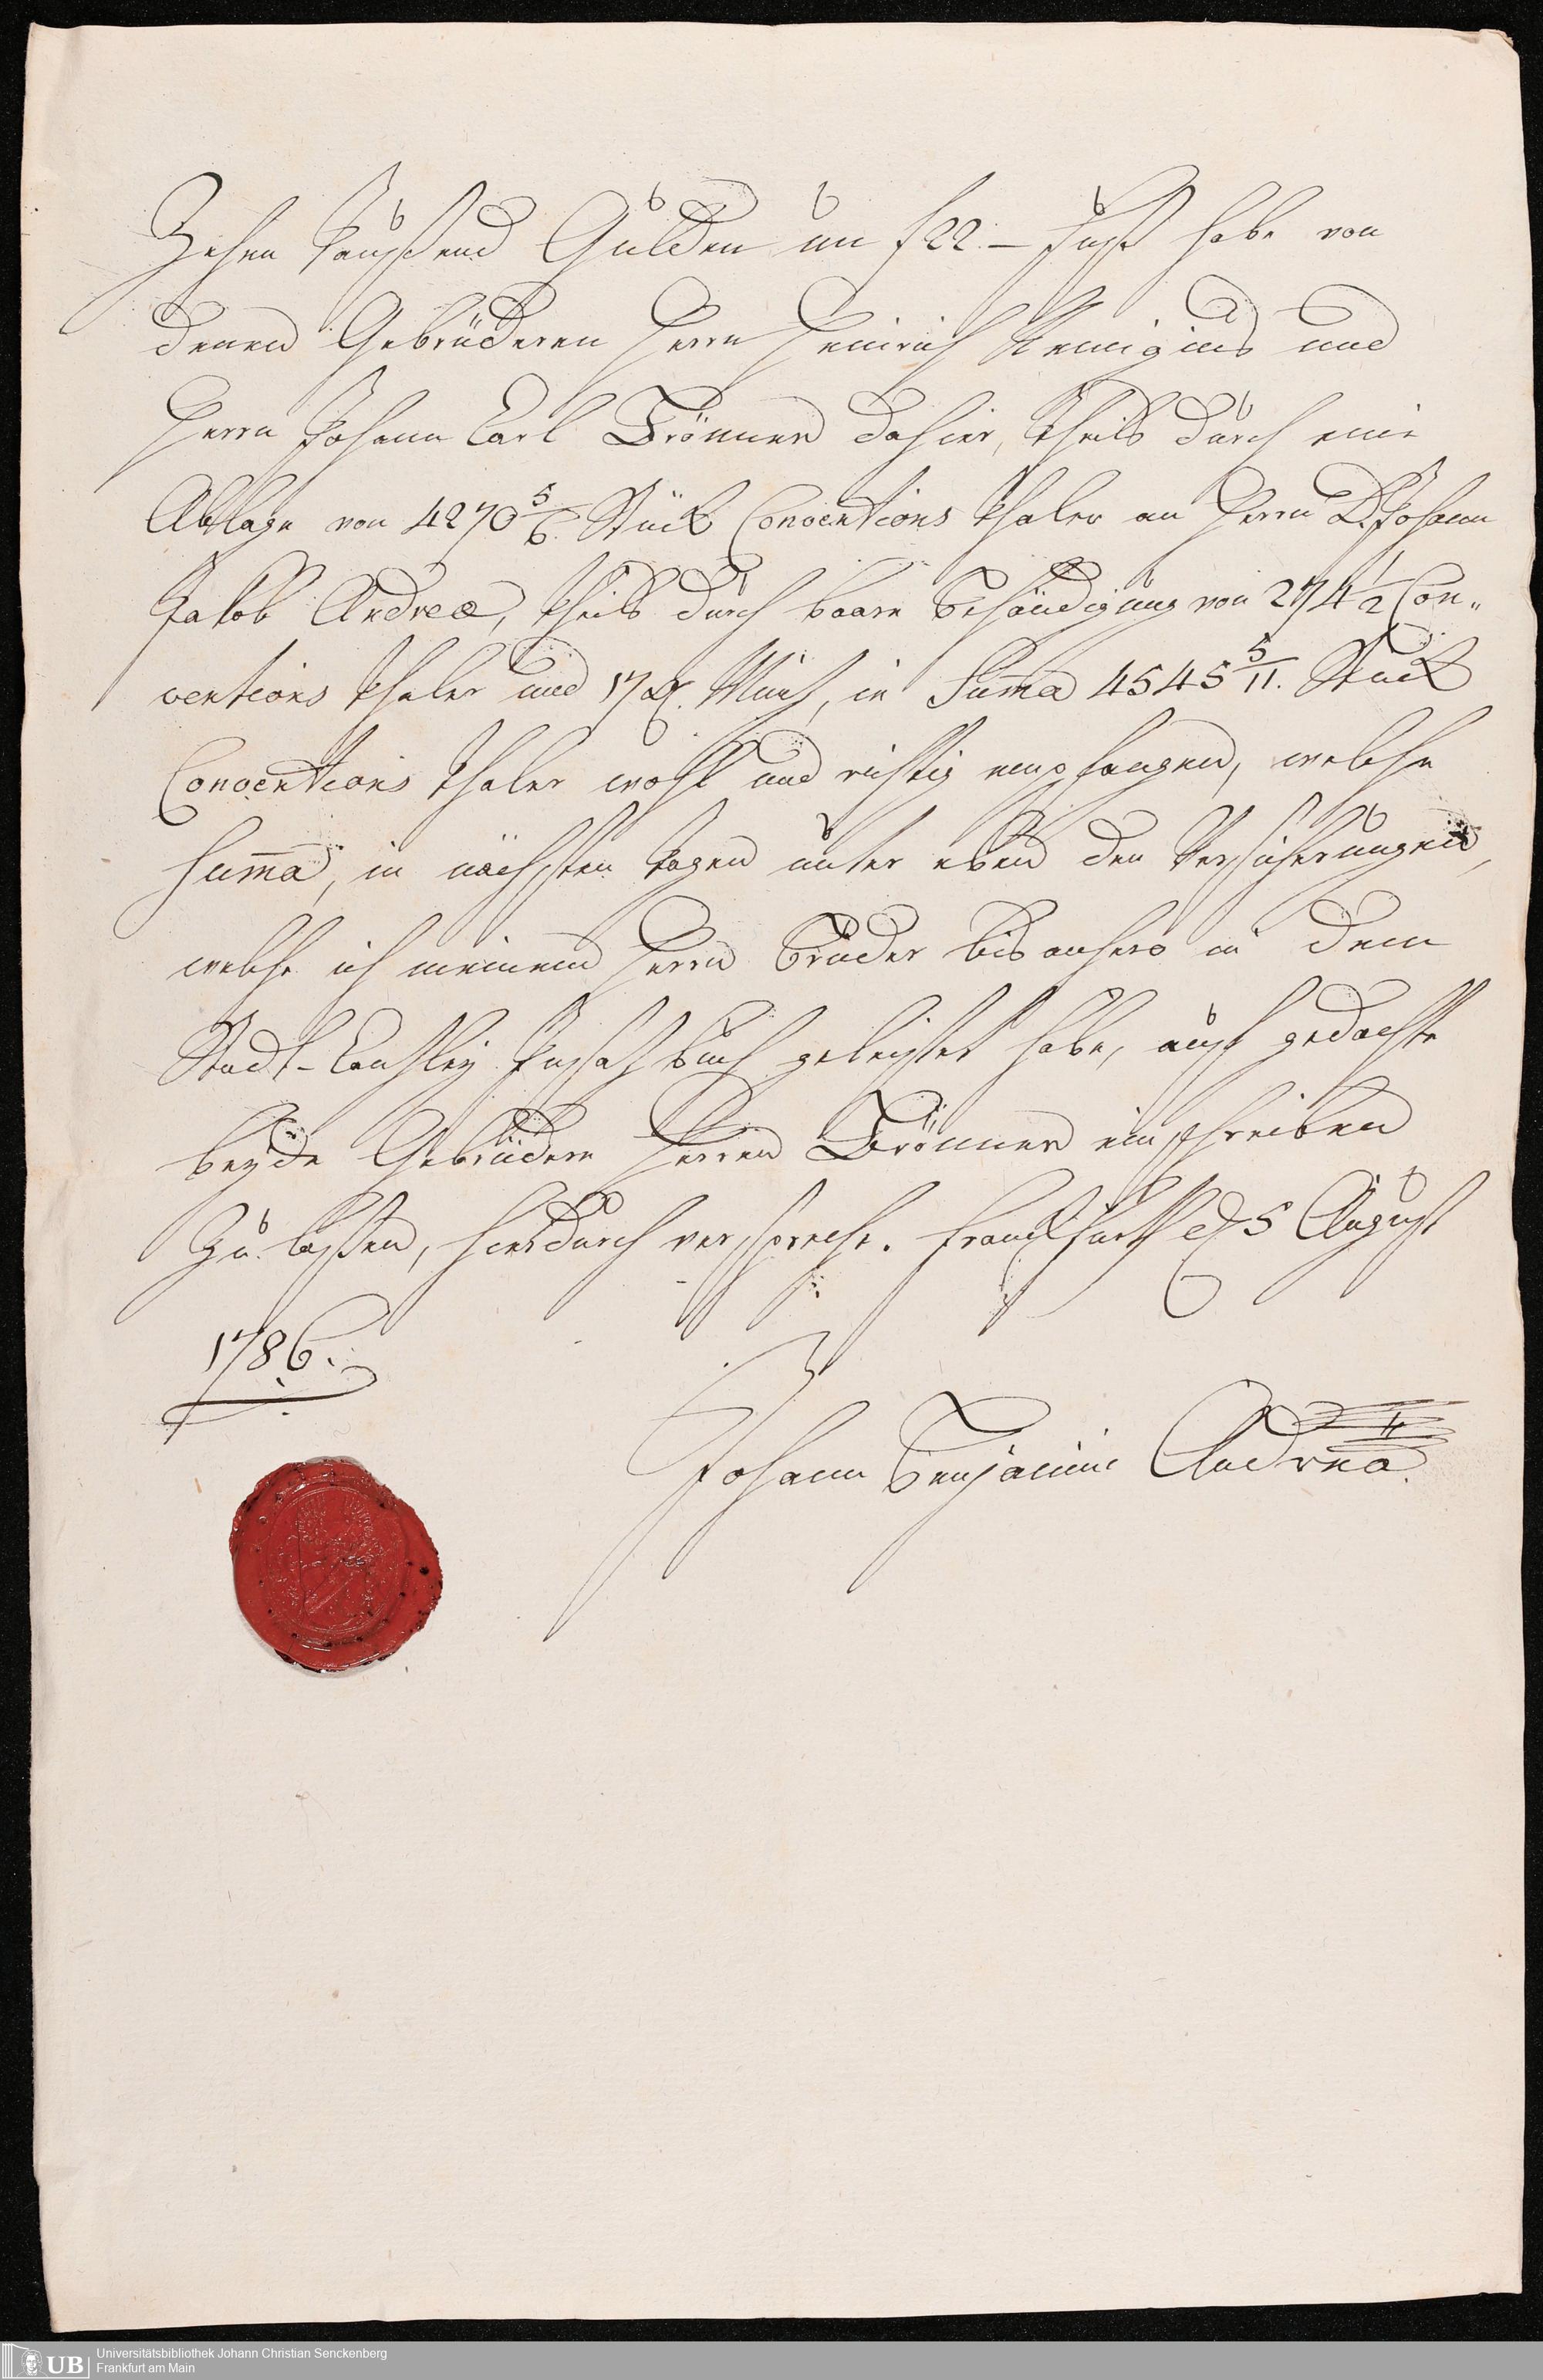 Zehen taußend Gulden im f22 – Fuß habe von
denen Gebrüderen Herrn Heinrich Remigius und
Herrn Johann Carl Brönner dahier, theils durch eine
Ablage von 4270 5/6. Stück Conventions thaler an Herrn D. Johann
Jakob Andreæ, theils durch baare Behändigung von 274 1/2 Con„
ventions thaler und 17 xr. Münz, in Summa 4545 5/11. Stück
Conventions thaler wohl und richtig empfangen, welche
Summa, in nächsten tagen unter eben den Versicherungen,
welche ich meinem Herrn Bruder bis anhero in dem
Stadt-Canzley Insatzbuch geleistet habe, auf gedachte
beyde Gebrüdere Herren Brönner einschreiben
zu laßen, hierdurch verspreche. Franckfurth d 5 August
1786.
Johann Benjamin Andreä.
UB
Universitätsbibliothek Johann Christian Senckenberg
Frankfurt am Main